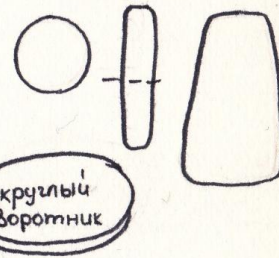 круглый
воротник